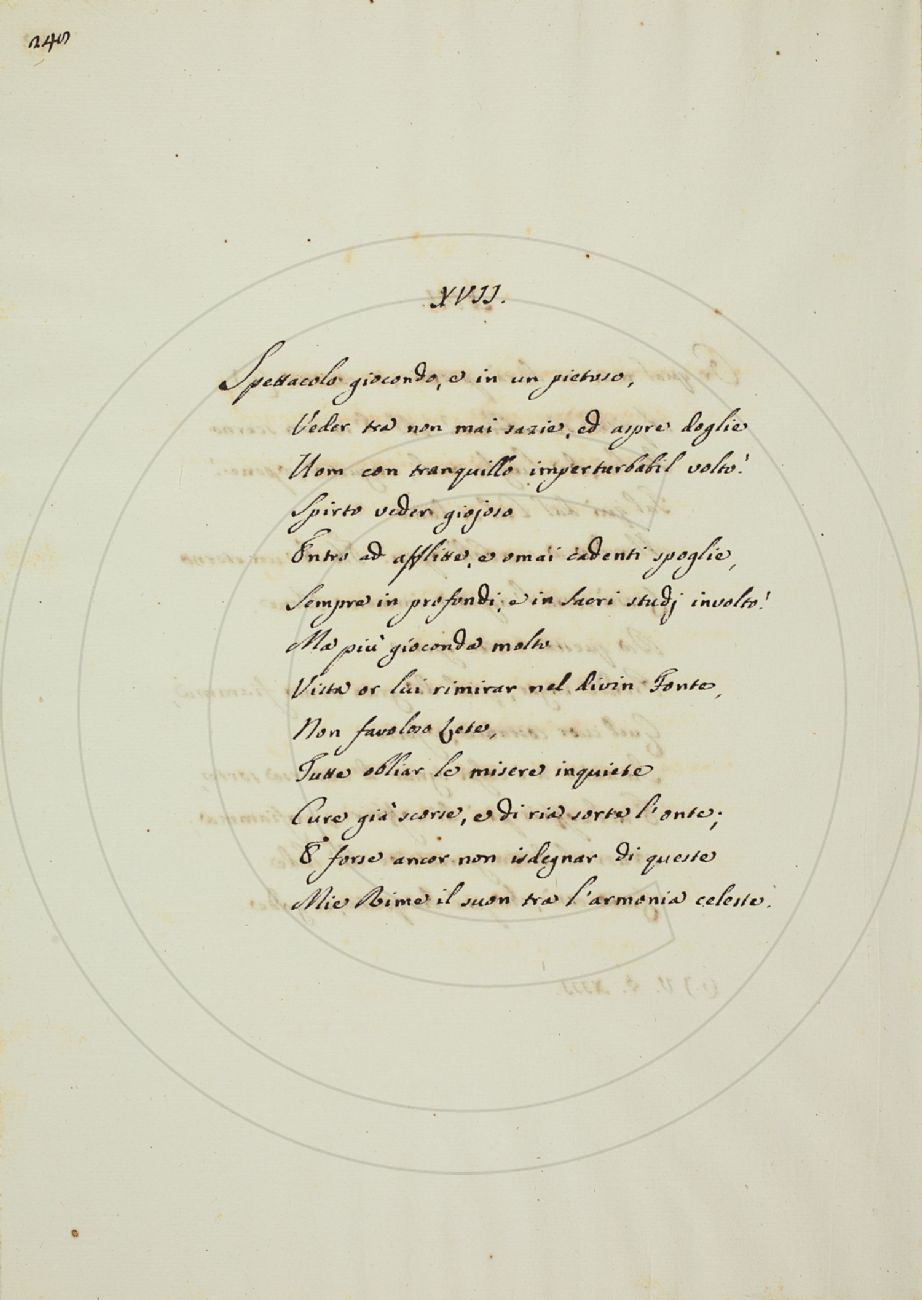 XVII.
Spettacolo giocondo, e in un pietoso,
Veder tra non mai sazie, ed aspre doglie
Uom con tranquillo imperturbabil volto!
Spirto veder giojoso
Entro ad afflitte, e omai cadenti spoglie,
Sempre in profondi, e in sacri studj involto!
Ma più gioconda molto
Vista or lui rimirar nel divin Fonte,
Non favoloso Lete,
Tutte obbliar le misere inquiete
Cure già scorse, e di ria sorte l'onte;
E forse ancor non isdegnar di queste
Mie Rime il suon tra l'armonia celeste.